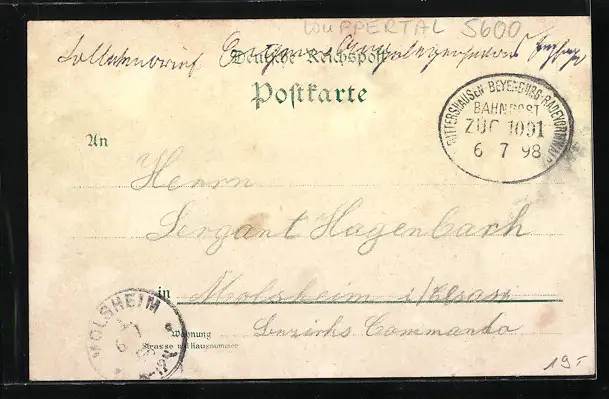 WUPPERTAL 5600
Deutsche Reichspost
Postkarte
RITTERSHAUSEN-BEYENBURG-RADEVORMWALD
BAHNPOST
ZUG 1091
6 7 98
An
Herrn
Sergant Hagenbach
in Molsheim i/Elsass
Wohnung
Strasse und Hausnummer
Bezirks Commando
MOLSHEIM
19-